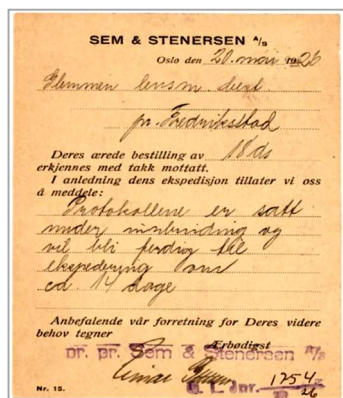 SEM & STENERSEN A/S
Oslo den 20. mai 1926
Glemmen lensm. 
pr. Fredrikstad
Deres ærede bestilling av 18 ds
erkjennes med takk mottatt.
I anledning dens ekspedisjon tillater vi oss
å meddele:
Protokollene er satt
under innbinding og
vil bli ferdig til
ekspedering om
ca. 14 dage
Anbefalende vår forretning for Deres videre
behov tegner
Ærbødigst
pr. pr. Sem & Stenersen A/s
Einar
G. L. Jnr. 1254
26
Nr. 15.